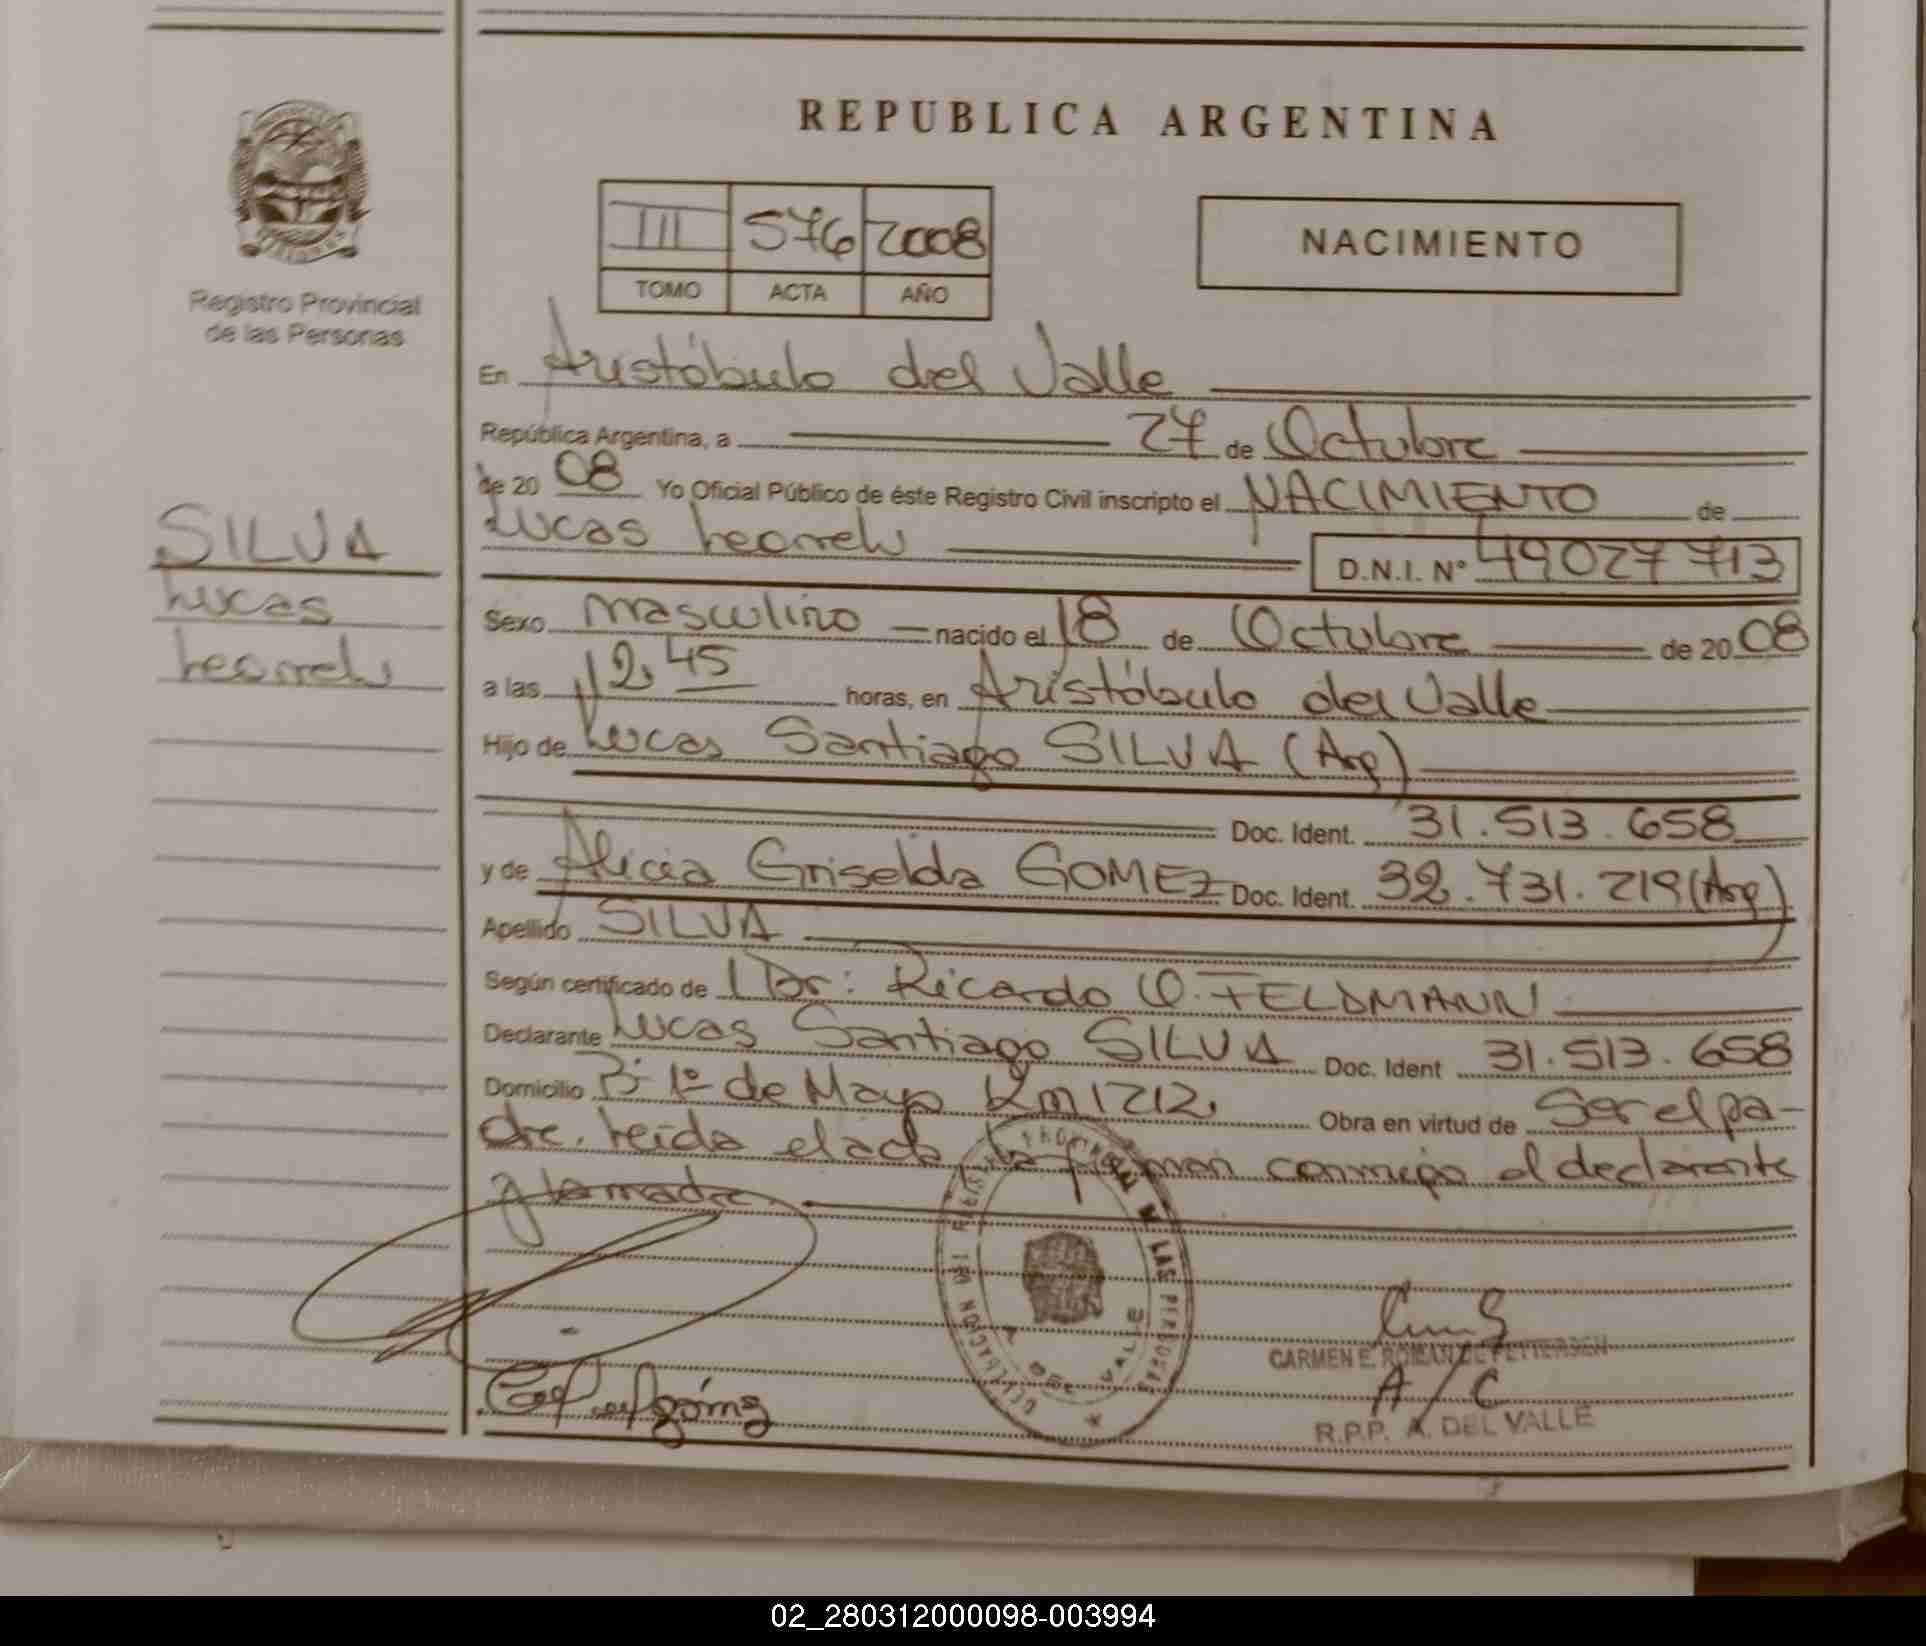 REPUBLICA ARGENTINA
III 576 2008
TOMO ACTA AÑO
NACIMIENTO
Registro Provincial
de las Personas
SILVA
Lucas
Leonel
En Aristóbulo del Valle
República Argentina, a 27 de Octubre
de 20 08 Yo Oficial Público de éste Registro Civil inscripto el NACIMIENTO de
Lucas Leonel D.N.I. N° 49027713
Sexo masculino nacido el 18 de Octubre de 20 08
a las 12,45 horas, en Aristóbulo del Valle
Hijo de Lucas Santiago SILVA (Arg)
Doc. Ident. 31.513.658
y de Alicia Griselda GOMEZ Doc. Ident. 32.731.219 (Arg)
Apellido SILVA
Según certificado de Dr: Ricardo O. FELDMANN
Declarante Lucas Santiago SILVA Doc. Ident 31.513.658
Domicilio B° 1° de Mayo Km 1212, Obra en virtud de Ser el pa-
dre. Leida el acta, la firman conmigo el declarante
y la madre
CARMEN E. ROMAN DE PETTERSEN
A/C
R.P.P. A. DEL VALLE
02_280312000098-003994